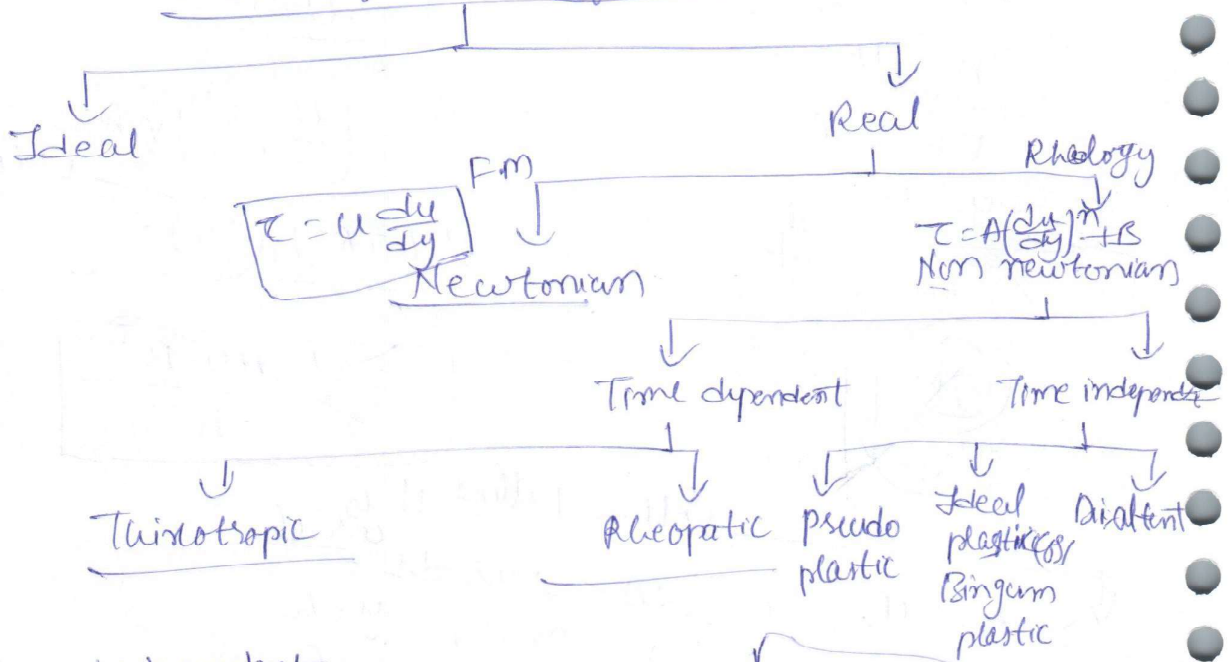 Ideal
Real
F.M
Rheology
τ = u du/dy
τ = A(du/dy)^n + B
Newtonian
Non newtonian
Time dependent
Time independe
Thixotropic
Rheopatic
pseudo
plastic
Ideal
plastic (or)
Bingum
plastic
Dialtent